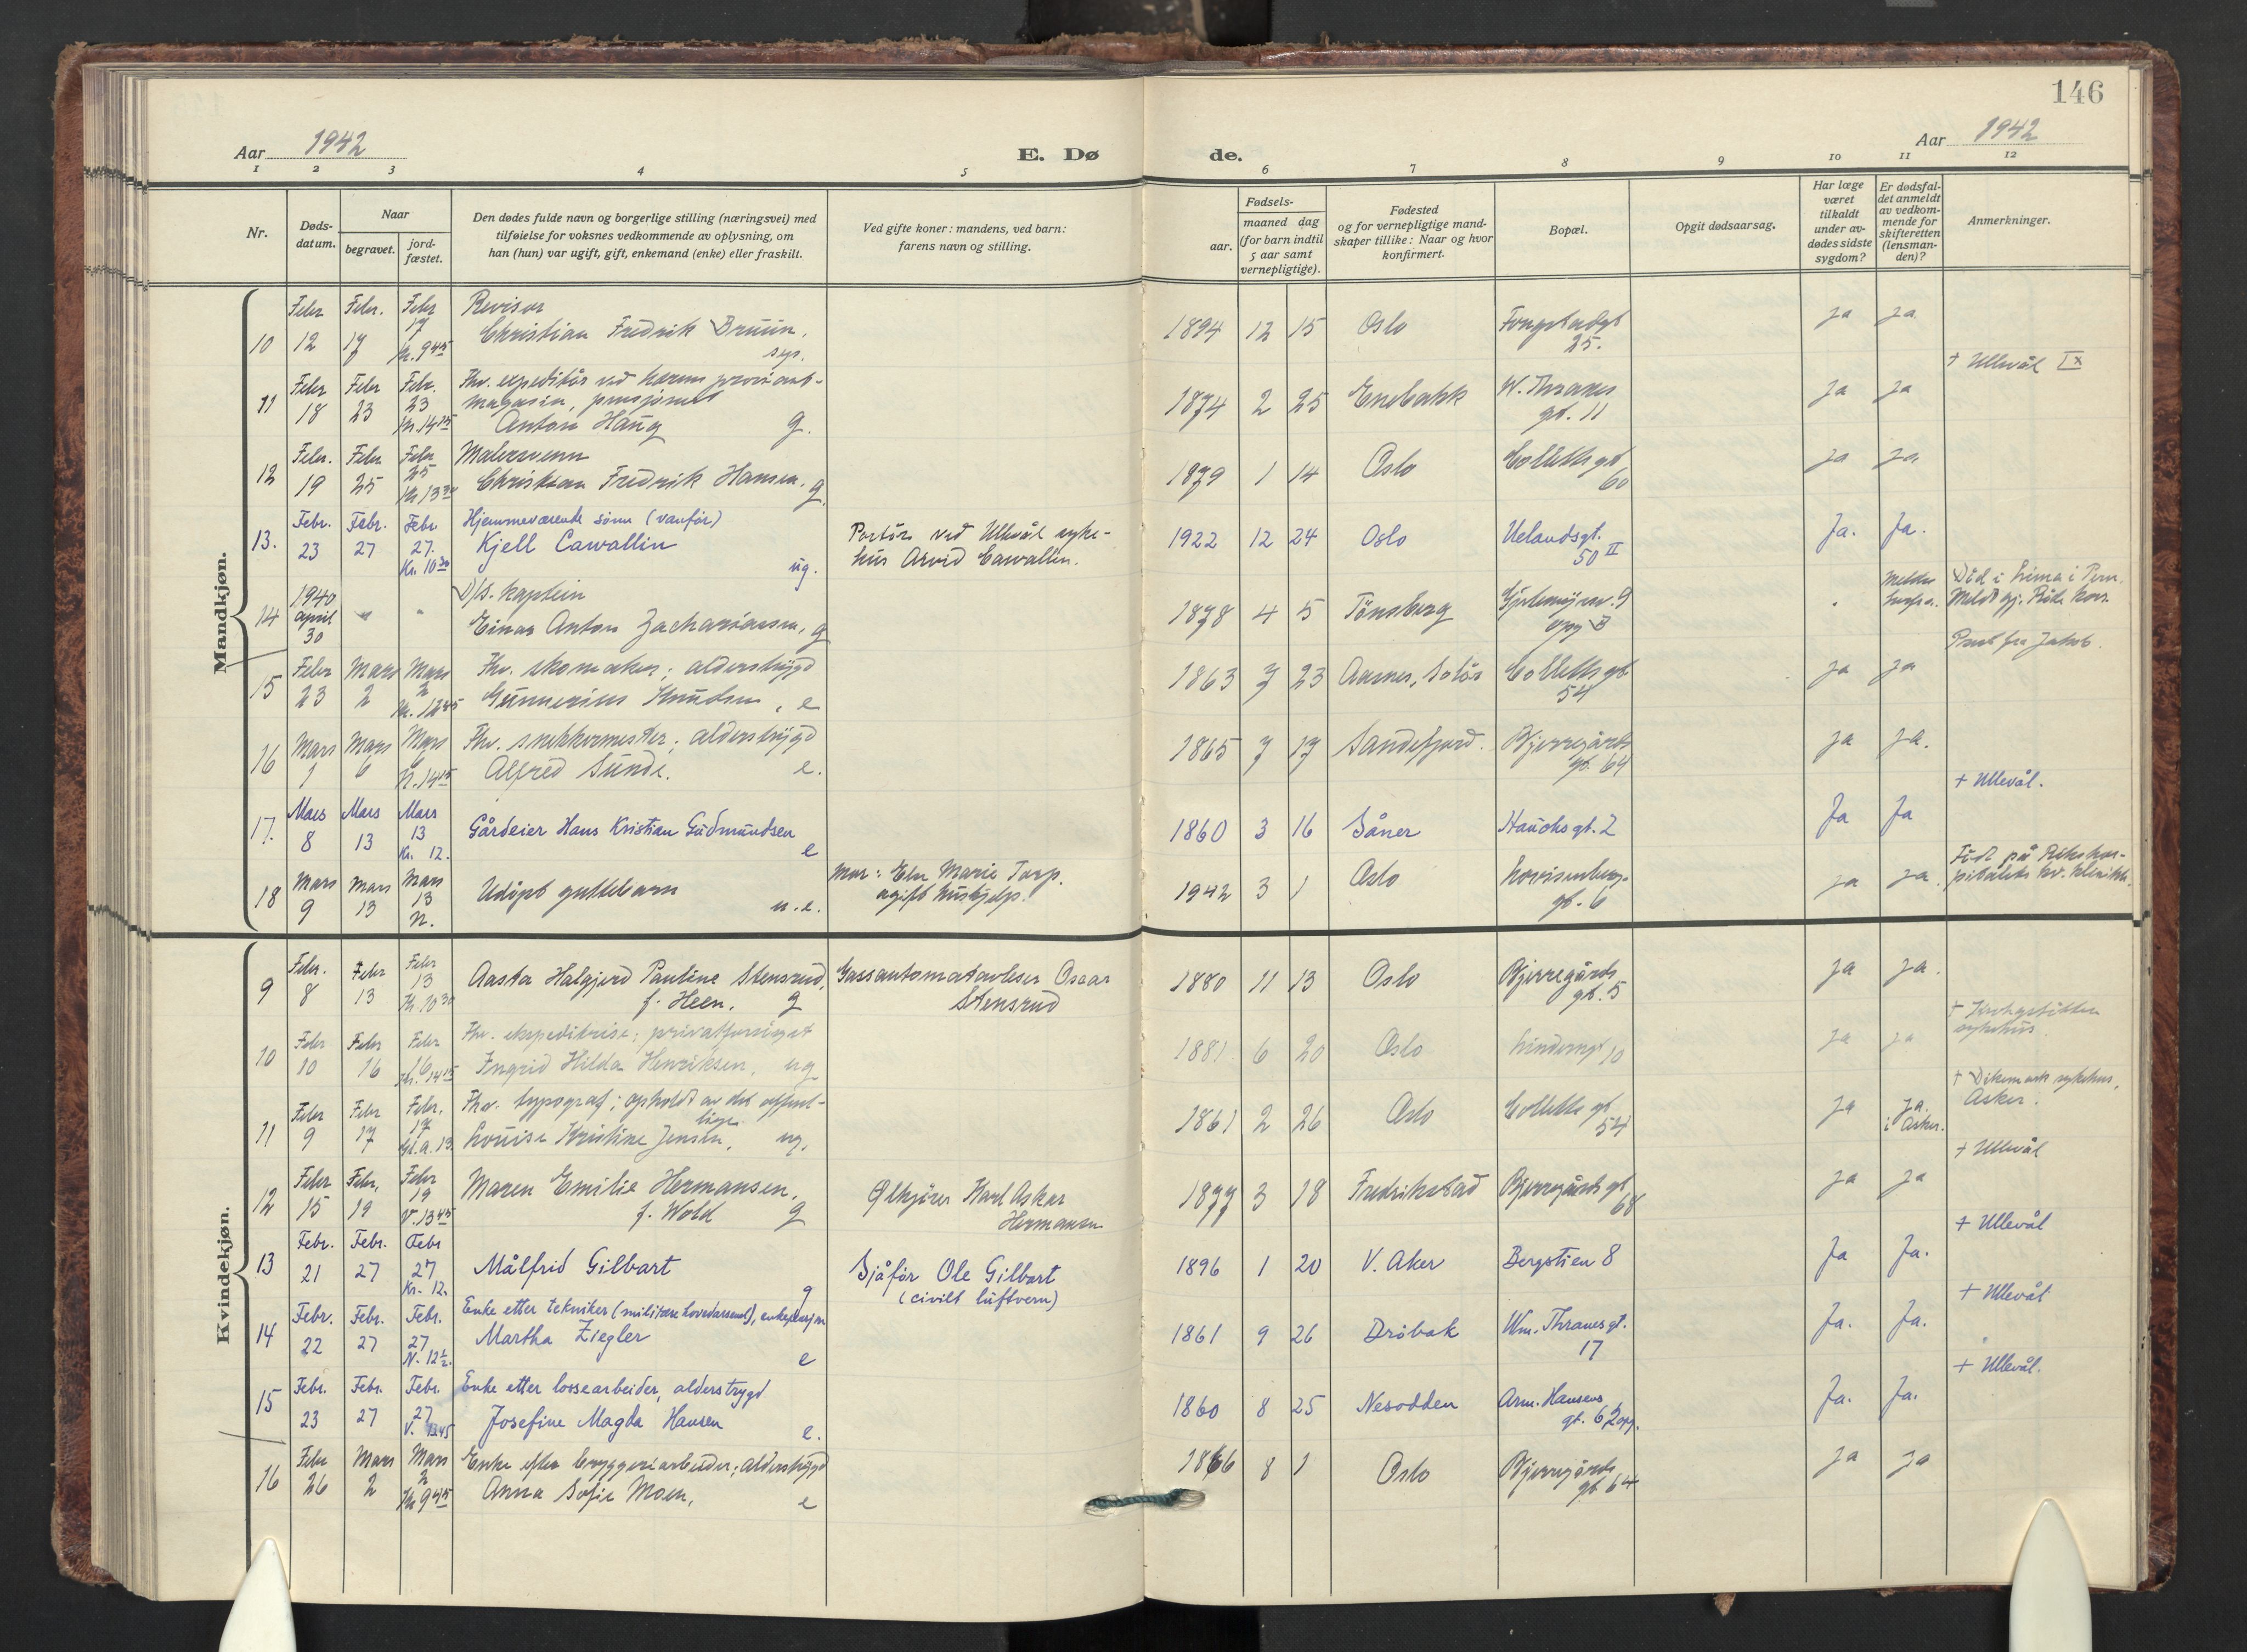 146
Aar 1942
E. Dø
de.
Aar 1942
1 2 3 4 5 6 7 8 9 10 11 12
Nr.
Døds-
datum.
Naar
begravet.
jord-
fæstet.
Den dødes fulde navn og borgerlige stilling (næringsvei) med
tilføielse for voksnes vedkommende av oplysning, om
han (hun) var ugift, gift, enkemand (enke) eller fraskilt.
Ved gifte koner: mandens, ved barn:
farens navn og stilling.
Fødsels-
aar.
maaned dag
(for barn indtil
5 aar samt
vernepligtige).
Fødested
og for vernepligtige mand-
skaper tillike: Naar og hvor
konfirmert.
Bopæl.
Opgit dødsaarsag.
Har læge
været
tilkaldt
under av-
dødes sidste
sygdom?
Er dødsfal-
det anmeldt
av vedkom-
mende for
skifteretten
(lensman-
den)?
Anmerkninger.
Mandkjøn.
Febr Febr. Febr Revisor
10 12 17 17 Kr. 9 45 Christian Fredrik Bruun, sep. 1894 12 15 Oslo 25. ja ja
Febr Febr Febr. Fhv. expeditør ved hærens proviant-
11 18 23 23 Kr. 14 15 magasin, pensjonist
Anton Haug g. 1874 2 25 Enebakk W. Thranes gt. 11 ja ja + Ullevål
Febr. Febr Febr Malersvenn
12 19 25 25 Kr. 13 30 Christian Fredrik Hansen, g. 1879 1 14 Oslo Colletts gt 60 ja ja
Febr. Febr. Febr Hjemmeværende sønn (vanfør)
13. 23 27 27. Kr. 10 30 Kjell Cawallin ug. Portør ved Ullevål syke-
hus Arvid Cawallin. 1922 12 24 Oslo Uelandsgt. 50 II Ja. Ja.
1940 D/S. kaptein
14 april 30 Einar Anton Zachariassen, g 1878 4 5 Tønsberg opg B Død i Lima i Peru.
Jakob.
Febr Mars Mars Fhv. skomaker; alderstrygd
15 23 2 2 Kr. 12 45 Gunnerius Knudsen, e 1863 7 23 Aarnes, Solør Colletts gt 54 ja ja
Mars Mars Mars Fhv. snekkermester; alderstrygd
16 1 6 6 N. 14 15 Alfred Sunde. e. 1865 7 17 Sandefjord. Bjerregårds gt. 64 ja ja.
+ Ullevål.
Mars Mars Mars
17. 8 13 13 Kr. 12. Gårdeier Hans Kristian Gudmundsen e 1860 3 16 Såner Hauchs gt. 2 Ja Ja
Mars Mars Mars
18 9 13 13 N. Udøpt guttebarn u.e. Mor: Else Marie Torp.
ugift hushjelp. 1942 3 1 Oslo Lovisenberg-
gt. 6 ja ja. Født på Rikshos-
pitalets kv. klinikk.
Kvindekjøn.
Febr. Febr Febr
9 8 13 13 Kr. 10 30 Aasta Halgjerd Pauline Stensrud,
f. Heen. g Gassautomatavleser Oscar
Stensrud 1880 11 13 Oslo Bjerregårds
gt. 5 ja ja.
Febr Febr Febr Fhv. ekspeditrise; privatforsørget
10 10 16 16 Kr. 14 15 Ingrid Hilda Henriksen, ug 1881 6 20 Oslo Linderngt 10 ja ja sykehus.
Febr Febr Febr. Fhv. typograf; opholdt av det offent-
lige.
11 9 17 17 Gl. a. 13. Louise Kristine Jensen, ug. 1861 2 26 Oslo Colletts gt 54 ja ja.
i Asker. + Dikemark sykehus,
Asker.
Febr Febr. Febr
12 15 19 19 V. 13 45 Maren Emilie Hermansen,
f. Wold g Ølkjører Karl Oskar
Hermansen 1877 3 18 Fredrikstad Bjerregårds gt 68 ja ja + Ullevål
Febr. Febr. Febr
13 21 27 27 Kr. 12. Målfrid Gilbart g Sjåfør Ole Gilbart
(civilt luftvern) 1896 1 20 V. Aker Bergstien 8 Ja Ja. + Ullevål
Febr. Febr. Febr. Enke etter tekniker
14 22 27 27 N. 12½. Martha Ziegler e 1861 9 26 Drøbak Wm. Thranes gt.
17 Ja. Ja. + Ullevål
Febr. Febr. Febr. Enke etter lossearbeider, alderstrygd
15 23 27 27 V. Josefine Magda Hansen e. 1860 8 25 Nesodden Arm. Hansens
gt. 6 Ja. Ja. + Ullevål.
Febr Mars Mars Enke efter bryggeriarbeider; alderstrygd
16 26 2 2 Kr 9 45 Anna Sofie Moen, e 1866 8 1 Oslo Bjerregårds
gt. 64 ja ja